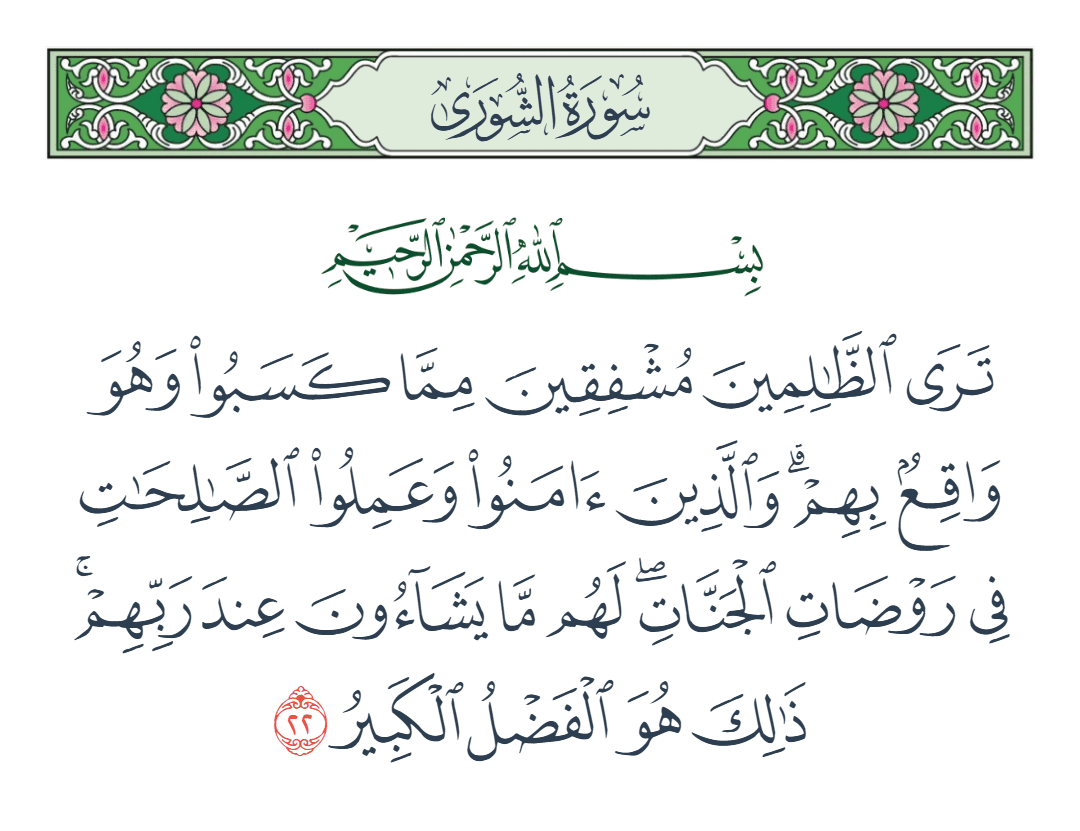 سُورَةُ الشُّورَىٰ
بِسْمِ ٱللَّهِ ٱلرَّحْمَٰنِ ٱلرَّحِيمِ
تَرَى ٱلظَّٰلِمِينَ مُشْفِقِينَ مِمَّا كَسَبُوا۟ وَهُوَ
وَاقِعٌۢ بِهِمْ ۗ وَٱلَّذِينَ ءَامَنُوا۟ وَعَمِلُوا۟ ٱلصَّٰلِحَٰتِ
فِى رَوْضَاتِ ٱلْجَنَّاتِ ۖ لَهُم مَّا يَشَآءُونَ عِندَ رَبِّهِمْ ۚ
ذَٰلِكَ هُوَ ٱلْفَضْلُ ٱلْكَبِيرُ ٢٢